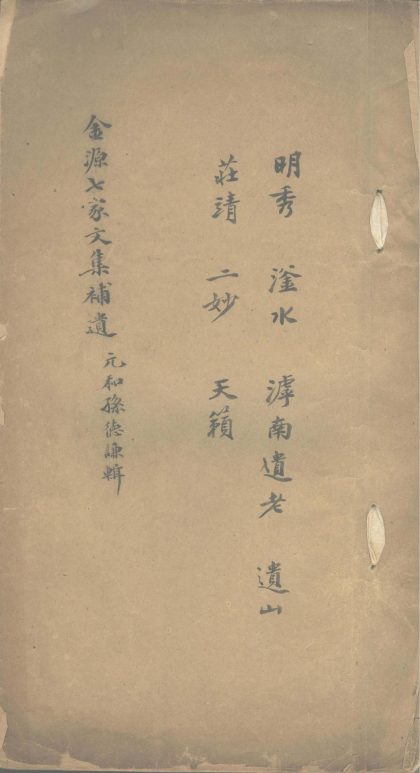 明秀 滏水 滹南遺老 遺山
莊靖 二妙 天籟
金源七家文集補遺 元和孫德謙輯